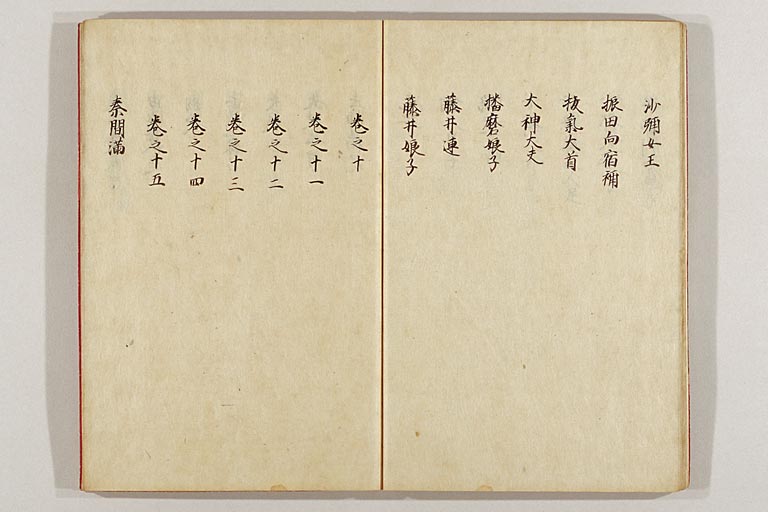 沙彌女王
振田向宿禰
抜氣大首
大神大夫
播磨娘子
藤井連
藤井娘子
卷之十
卷之十一
卷之十二
卷之十三
卷之十四
卷之十五
秦間滿